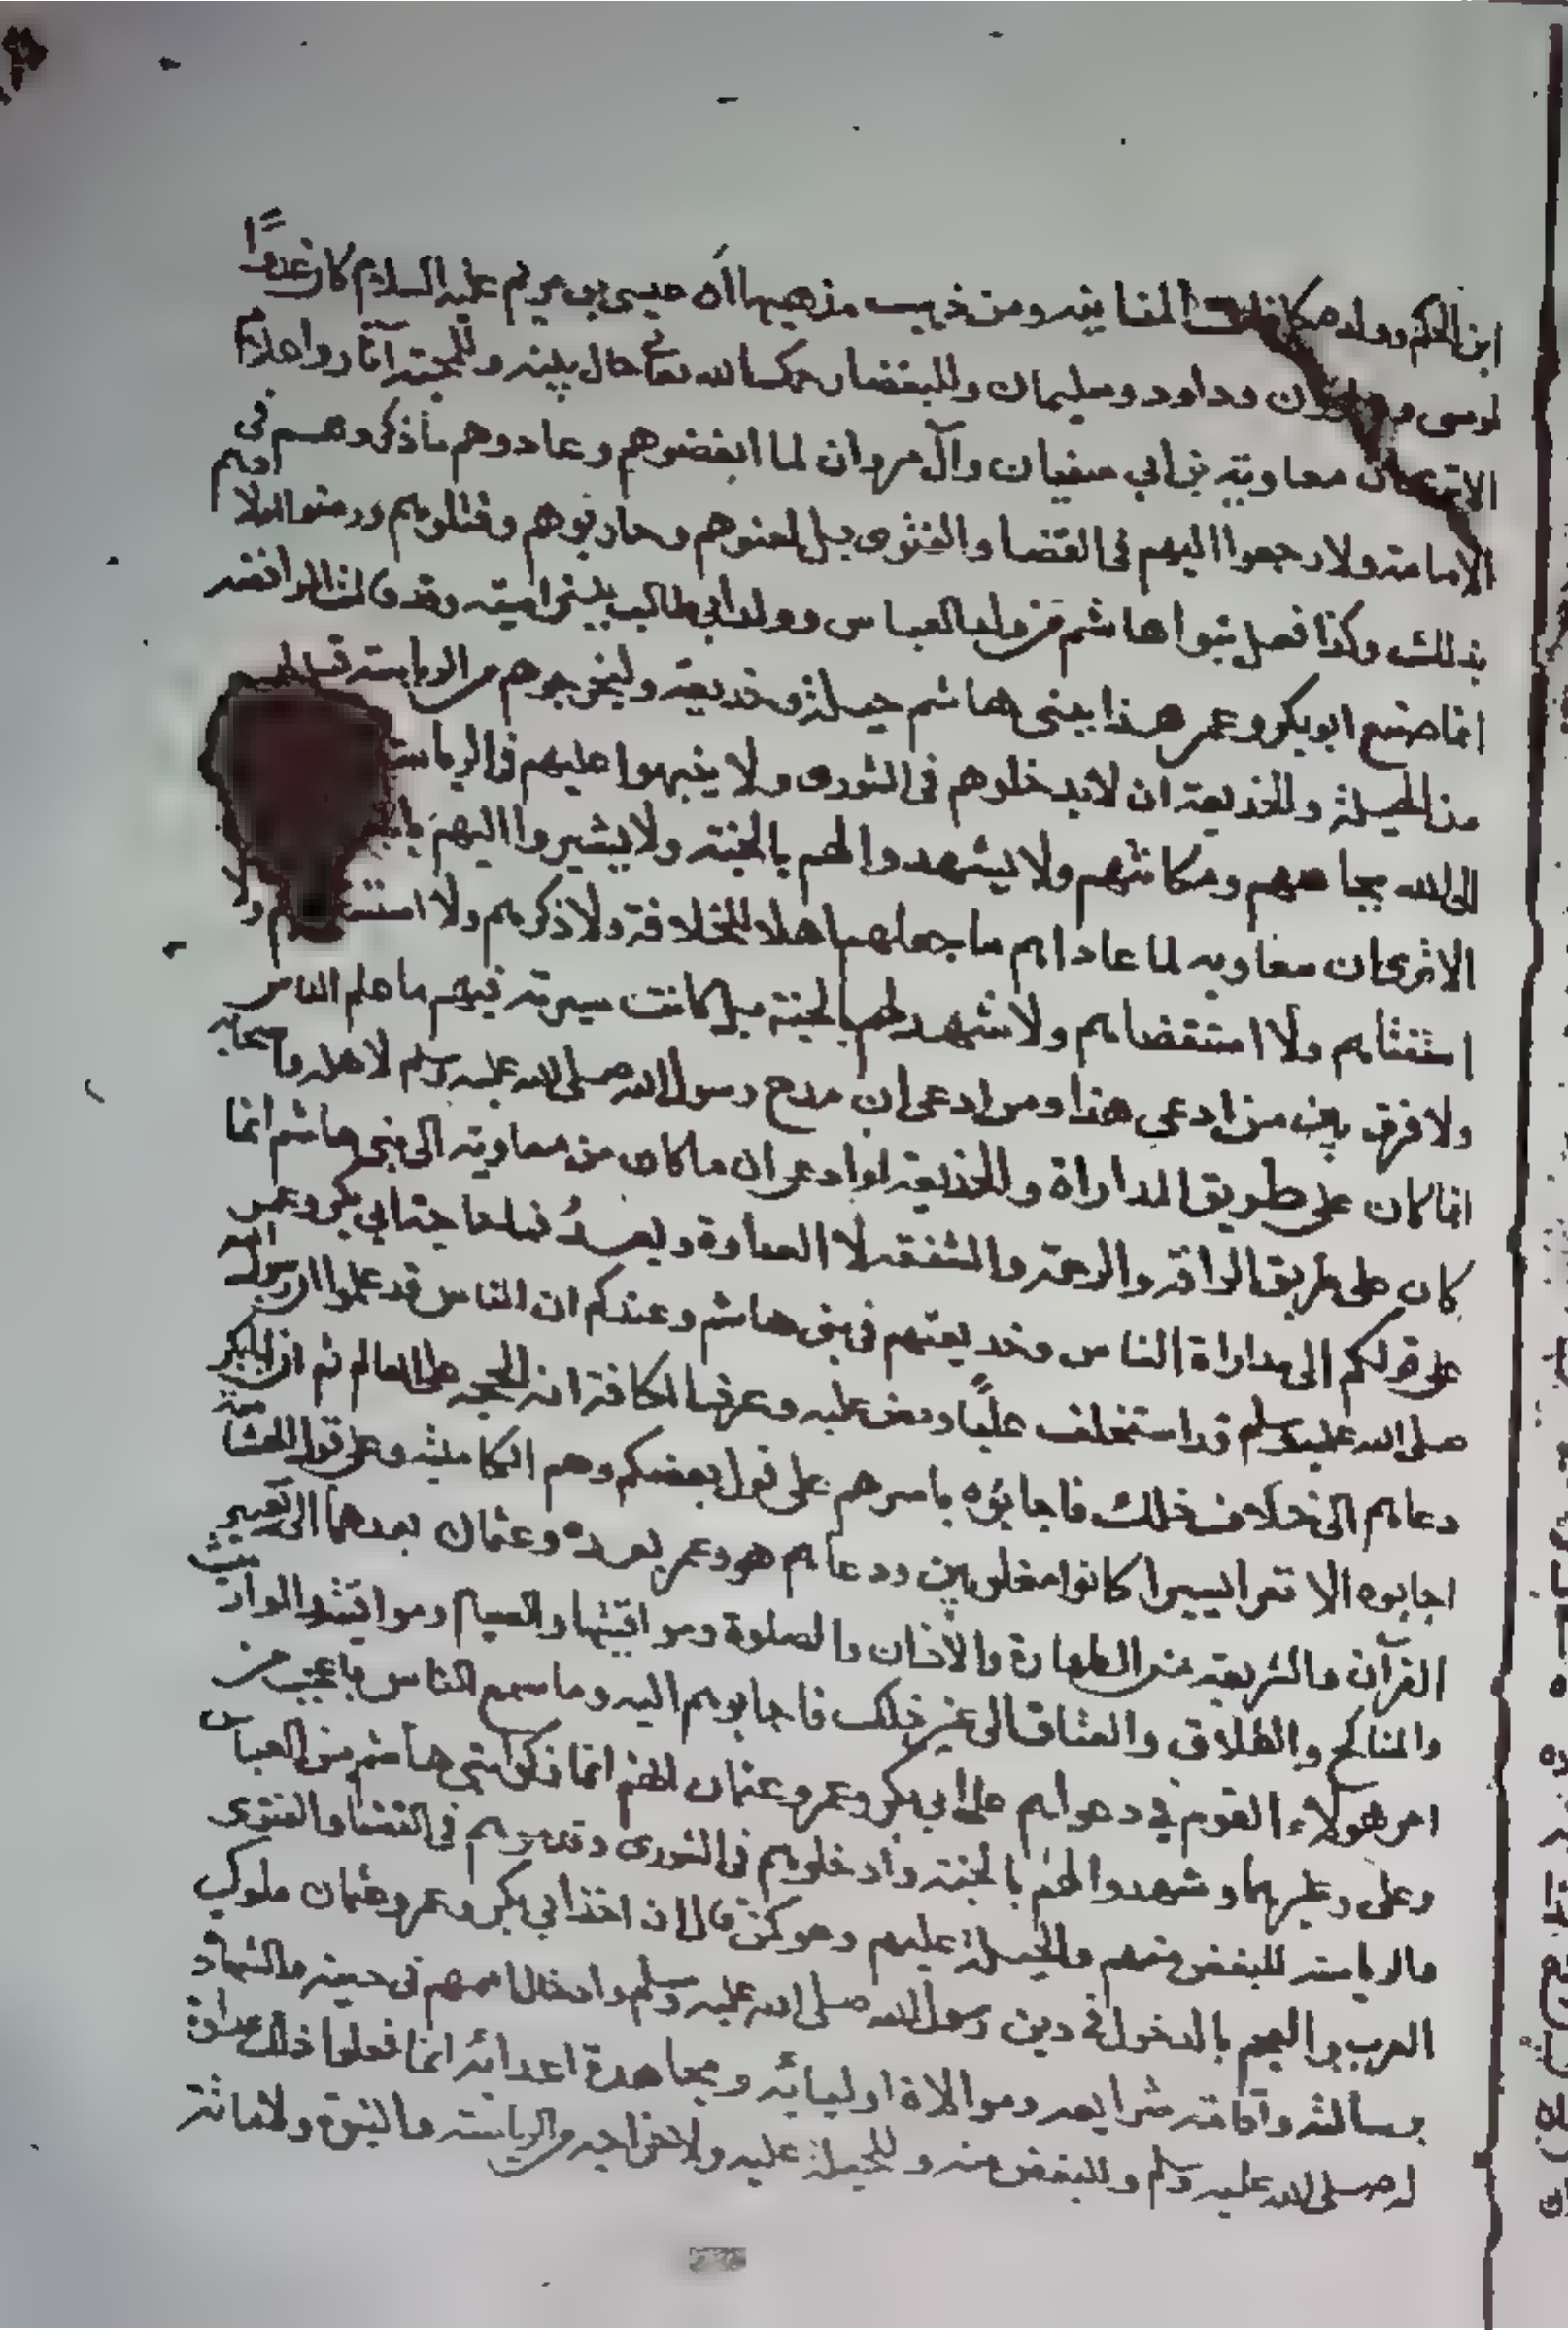 ابن الحكم وولده مكا المنا ينه ومن ذهب مذهبهما ان عيسى بن مريم عليه السلام كان عدوا
لموسى وهارون وداود وسليمان وللبغضا رحمك الله تعالى حال بينه وللمحبة آثار واعلام
الا ترى ان معاوية بن ابي سفيان وآل مروان لما ابغضوهم وعادوهم ما ذكروهم في
الامامة ولا رجعوا اليهم في القضا والفتوى بل لعنوهم وحاربوهم وقتلوهم ورضوا اولادهم
بذلك وكذا فعل بنوا هاشم من ولد العباس وولد ابي طالب ببني امية وقد قالت الرافضه
انما صنع ابو بكر وعمر هذا ببني هاشم حيلة وخديعة وليخرجوهم من الرياسة قيل لهم
من الحيلة والخديعة ان لا يدخلوهم في الشورى ولا ينبهوا عليهم في الرياسة
الى الله بجا ههم ومكانتهم ولا يشهدوا لهم بالجنة ولا يشيروا اليهم
الا ترى ان معاويه لما عاداهم ما جعلهم اهلا للخلافة ولا ذكرهم ولا ولا
استفتاهم ولا استقضاهم ولا شهد لهم بالجنة بل كانت سيرته فيهم ما علم الناس
ولا فرق بين من ادعى هذا ومن ادعى ان مدح رسول الله صلى الله عليه وسلم لاهله واصحابه
انما كان على طريق المداراة والخديعة او ادعى ان ما كان من معاوية الى بني هاشم انما
كان على طريق الرافة والرحمة والشفقه لا العداوة وبعد فما حاجة ابي بكر وعمر
على قولكم الى مداراة الناس وخديعتهم في بني هاشم وعندكم ان الناس قد علموا ان رسول الله
صلى الله عليه وسلم قد استخلف عليا ونص عليه وعرفه الكافة انه الحجه على العالم ثم ان ابا بكر
دعاهم الى خلاف ذلك فاجابوه باسرهم على قول بعضكم وهم الكاملية وعلى قول الهشامية
اجابوه الا نفرا يسيرا كانوا مغلوبين ودعاهم هو وعمر بعده وعثمان بعدهما الى تغيير
القرآن والشريعة من الطهارة والاذان والصلوة ومواقيتها والصيام ومواقيته والمواريث
والمناكح والطلاق والعتاق الى غير ذلك فاجابوهم اليه وما سمع الناس باعجب من
امر هؤلاء القوم في دعواهم على ابي بكر وعمر وعثمان انهم انما ذكروا بني هاشم من العباس
وعلى وغيرهما وشهدوا لهم بالجنة وادخلوهم في الشورى وقدموهم في القضا والفتوى
والرياسة للبغض منهم والحيلة عليهم وهو كمن قال ان اخذ ابي بكر وعمر وعثمان ملوك
العرب والعجم بالدخول في دين رسول الله صلى الله عليه وسلم وادخال اممهم في دينه والشهادة
برسالته واقامة شرايعه وموالاة اوليائه ومجاهدة اعدائه انما فعلوا ذلك عداوة
له صلى الله عليه وسلم وللبغض منه وللحيلة عليه ولاخراجه من الرياسة والنبوة ولاماتة